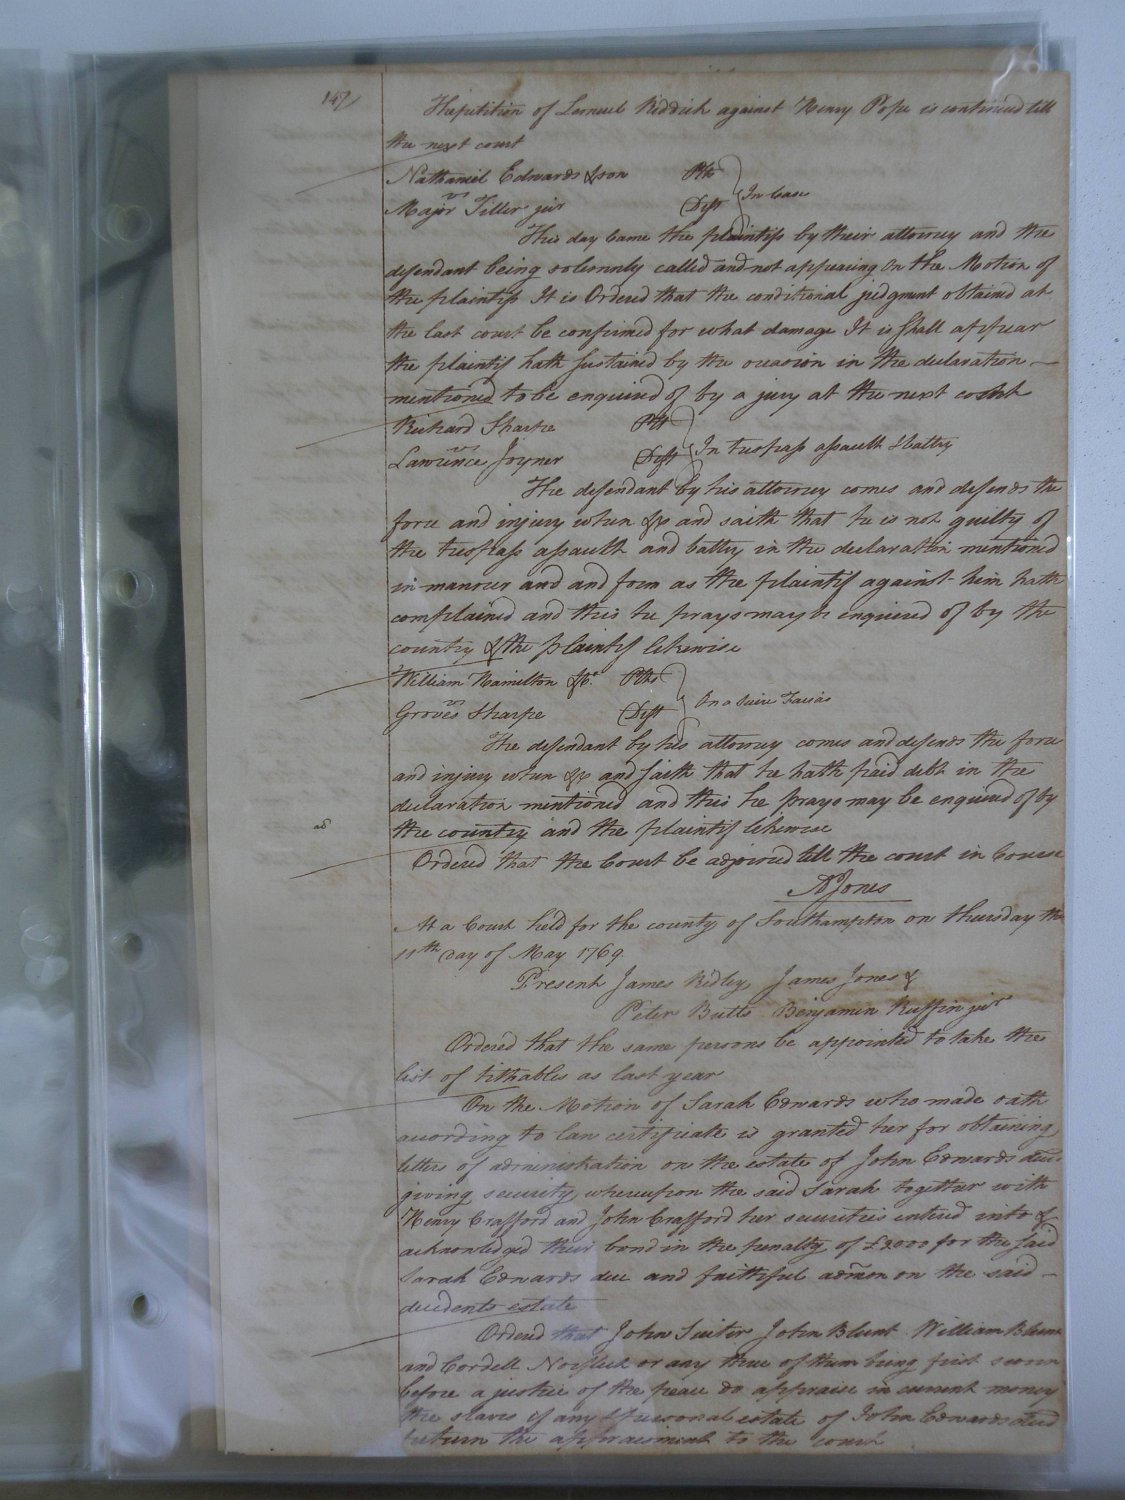 147
The petition of Lemuel Riddick against Henry Pope is continued till
the next court
Nathaniel Edwards & son Plts
vs In Case
Major Tiller junr Deft
This day Came the plaintifs by their attorney and the
defendant being solemnly called and not appearing On the Motion of
the plaintifs It is Ordered that the conditional judgment obtained at
the last court be confirmed for what damage It is shall appear
the plaintif hath sustained by the occasion in the declaration —
mentioned to be enquired of by a jury at the next court
Richard Sharpe Plt
vs In trespass assault & battry
Lawrence Joyner Deft
The defendant by his attorney comes and defends the
force and injury when &c and saith that he is not guilty of
the trespass assault and battry in the declaration mentioned
in manner and and form as the plaintif against him hath
complained and this he prays may be enquired of by the
country & the plaintif likewise
William Hamilton &Co. Plts
vs On a Scire Facias
Groves Sharpe Deft
The defendant by his attorney comes and defends the force
and injury when &c and saith that he hath paid debt in the
declaration mentioned and this he prays may be enquired of by
the country and the plaintif likewise
ad
Ordered that the Court be adjorned till the court in Course
A Jones
At a Court held for the county of Southampton on thursday the
11th Day of May 1769.
Present James Ridley, James Jones &
Peter Butts Benjamin Ruffin junr
Ordered that the same persons be appointed to take the
list of tithables as last year
On the Motion of Sarah Edwards who made oath
according to law certificate is granted her for obtaining
letters of administration on the estate of John Edwards decd.
giving security, whereupon the said Sarah together with
Henry Crafford and John Crafford her securities entered into &
acknowledged their bond in the penalty of £2000 for the said
Sarah Edwards due and faithful admon on the said —
decedents estate
Ordered that John Suiter John Blunt William Blunt
and Cordell Norfleet or any three of them being first sworn
before a justice of the peace do appraise in current money
the slaves if any & personal estate of John Edwards decd
return the appraisment to the court